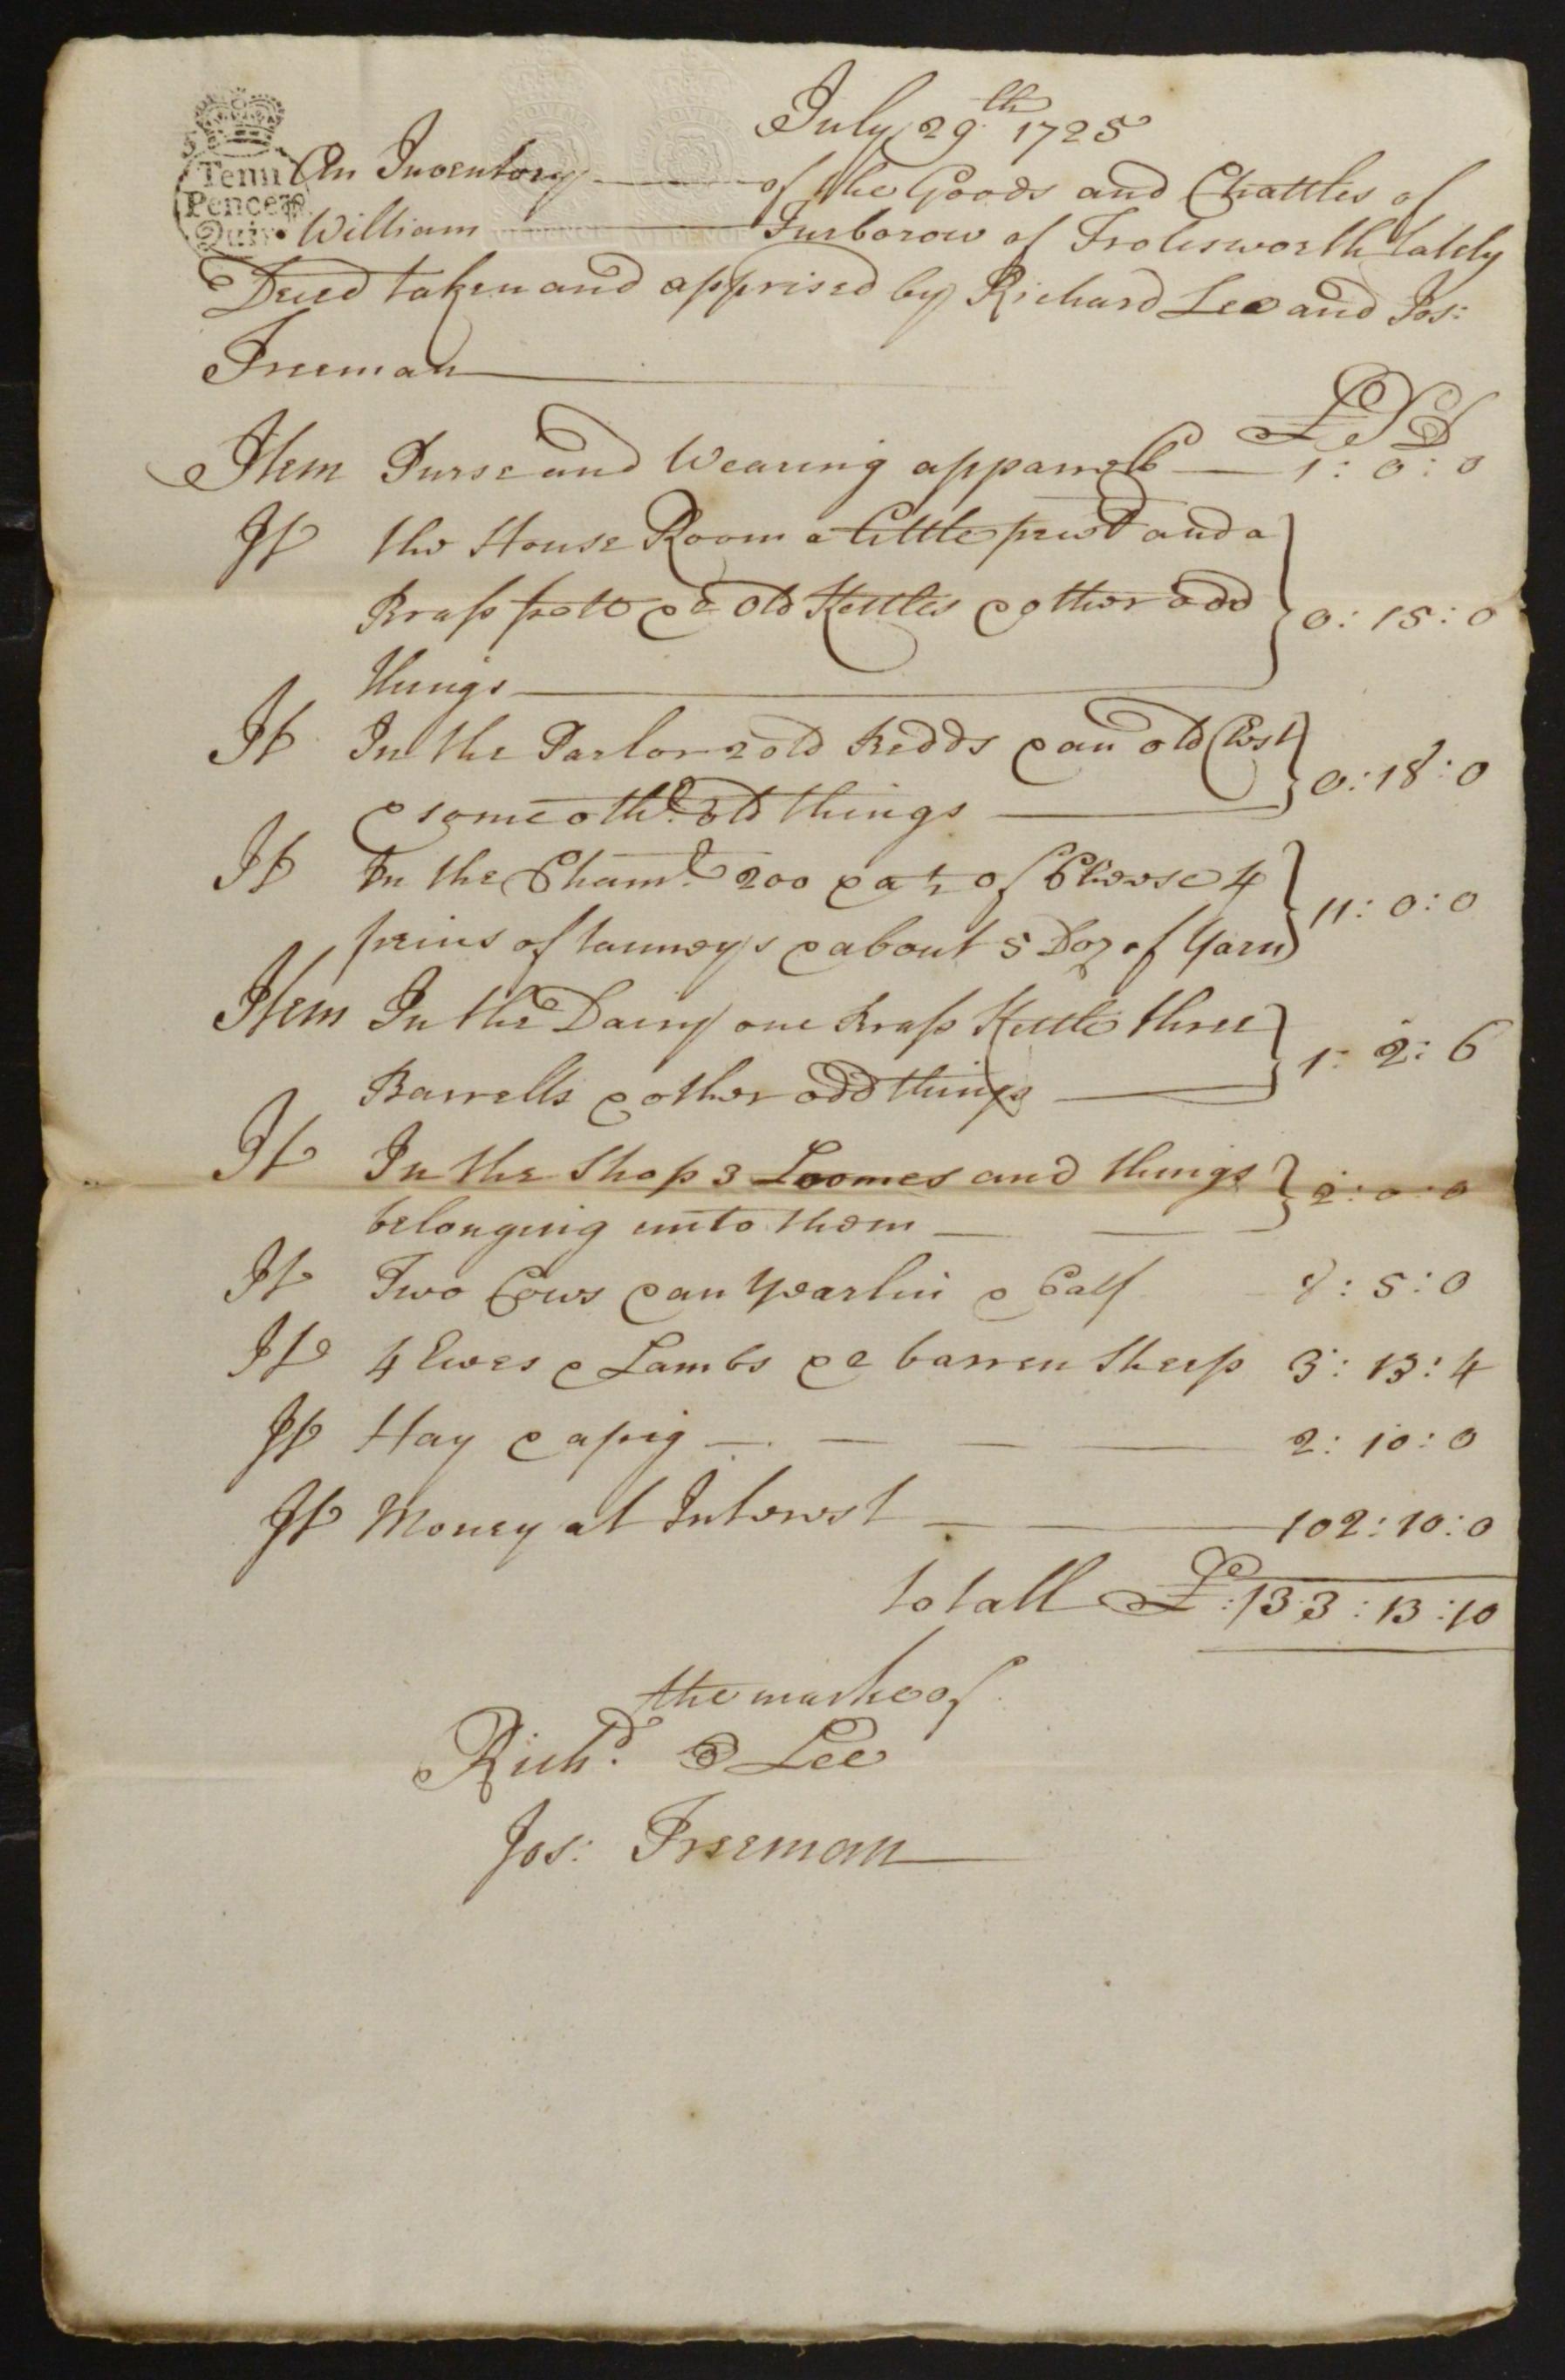 July 29th 1725
Tenn
Pence pr
Quir
An Inventory of the Goods and Chattles of
William Furborow of Frolesworth lately
Deced taken and apprised by Richard Lee and Jos:
Freeman
£ S D
Item Purse and Wearing apparrell 1 : 0 : 0
It the House Room a little pewt and a
Brass pott & 2 old Kettles & other odd 0 : 15 : 0
things
It In the Parlor 2 old Bedds & an old Chest
& some othr old things 0 : 18 : 0
It In the Chamr 200 & a ½ of Cheese 4
of & about 5 Doz of Yarn 11 : 0 : 0
Item In the Dairy one brass Kettle three
Barrells & other odd things 1 : 2 : 6
It In the Shop 3 Loomes and things 2 : 0 : 0
belonging unto them
It Two Cows & an Yearlin & Calf 8 : 5 : 0
It 4 Ewes & Lambs & 2 barren Sheep 3 : 13 : 4
It Hay & a pig 2 : 10 : 0
It Money at Interest 102 : 10 : 0
totall £ : 133 : 13 : 10
the marke of
Richd. Lee
Jos: Freeman